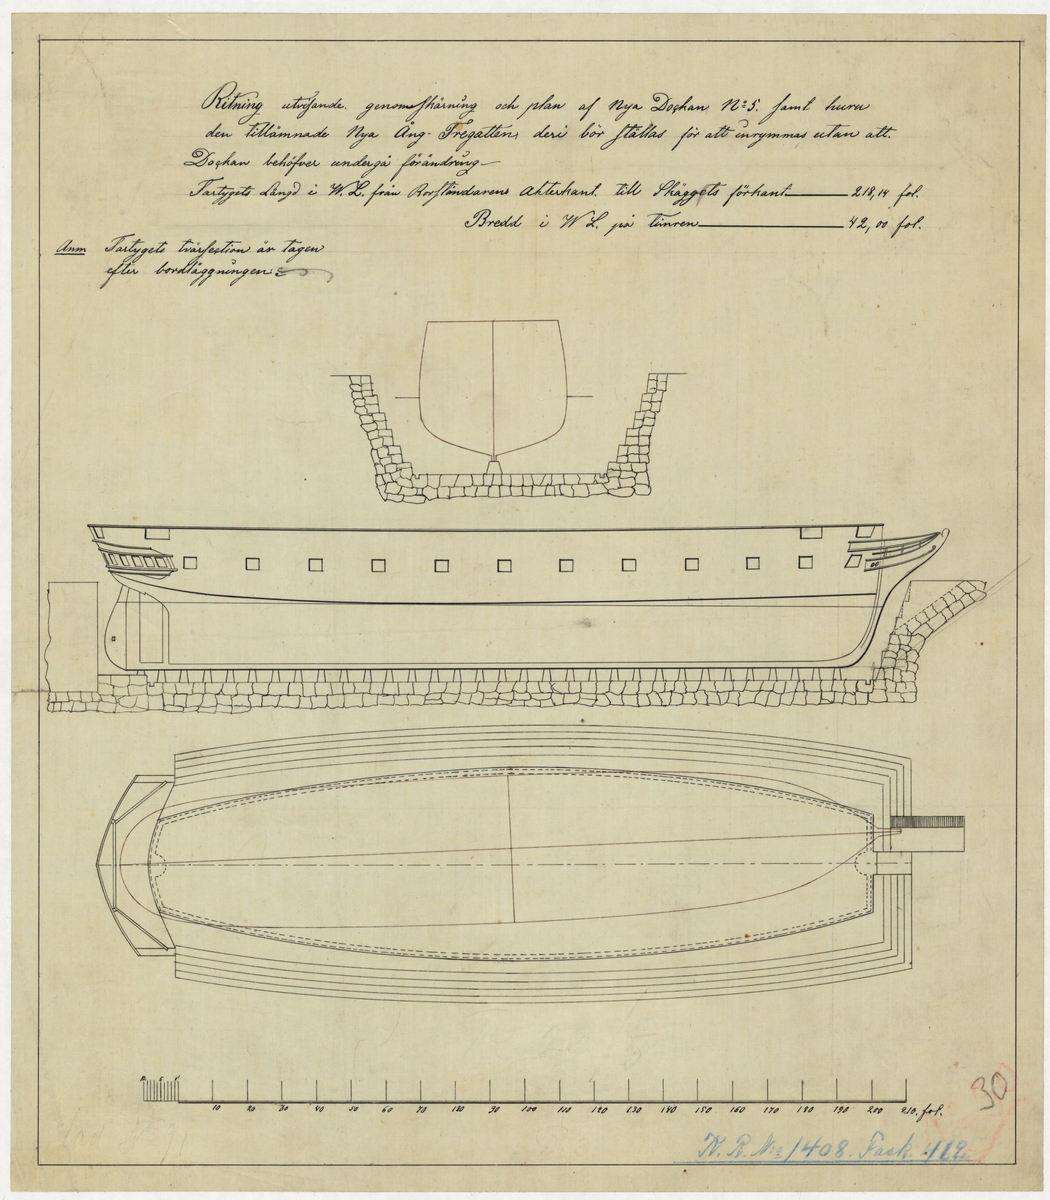 Ritning utvisande genomskärning och plan af Nya Dockan No 5. samt huru
den tillämnade Nya Ång-Fregatten, deri bör ställas för att inrymmas utan att
Dockan behöfver undergå förändring
Fartygets Längd i W.L. från Rorständarens Akterkant till Skäggets förkant 218,14 fot.
Bredd i W L. på timren 42,00 fot.
Anm Fartygets tvärsection är tagen
efter bordläggningen
10 20 30 40 50 60 70 80 90 100 110 120 130 140 150 160 170 180 190 200 210. fot.
30
K. R. No 1408. Fack. 412